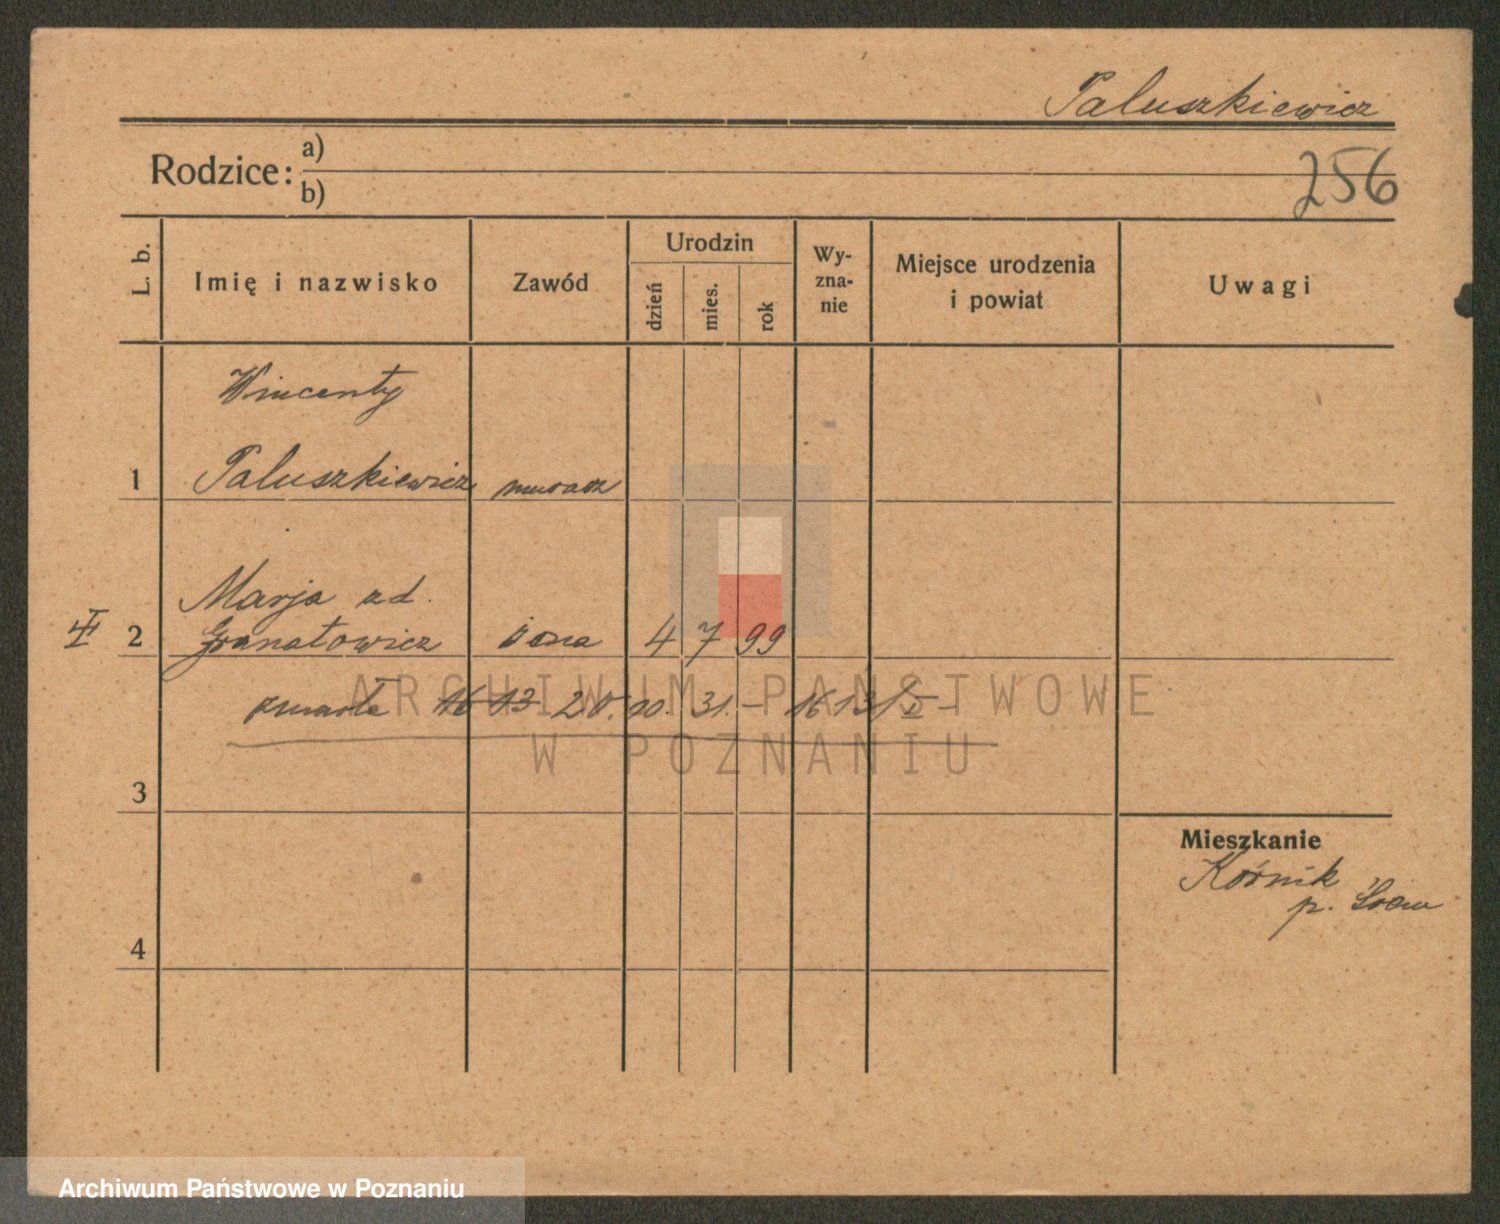 Paluszkiewicz
Rodzice: a)
b)
256
L. b.
Imię i nazwisko
Zawód
Urodzin
dzień
mies.
rok
Wy-
zna-
nie
Miejsce urodzenia
i powiat
Uwagi
Wincenty
1 Paluszkiewicz murarz
Marja zd.
2 Granatowicz żona 4 7 99
zmarła 16 13 20. 10. 31. – 1613/II –
3
Mieszkanie
Kórnik
p. Śrem
4
ARCHIWUM PAŃSTWOWE
W POZNANIU
Archiwum Państwowe w Poznaniu